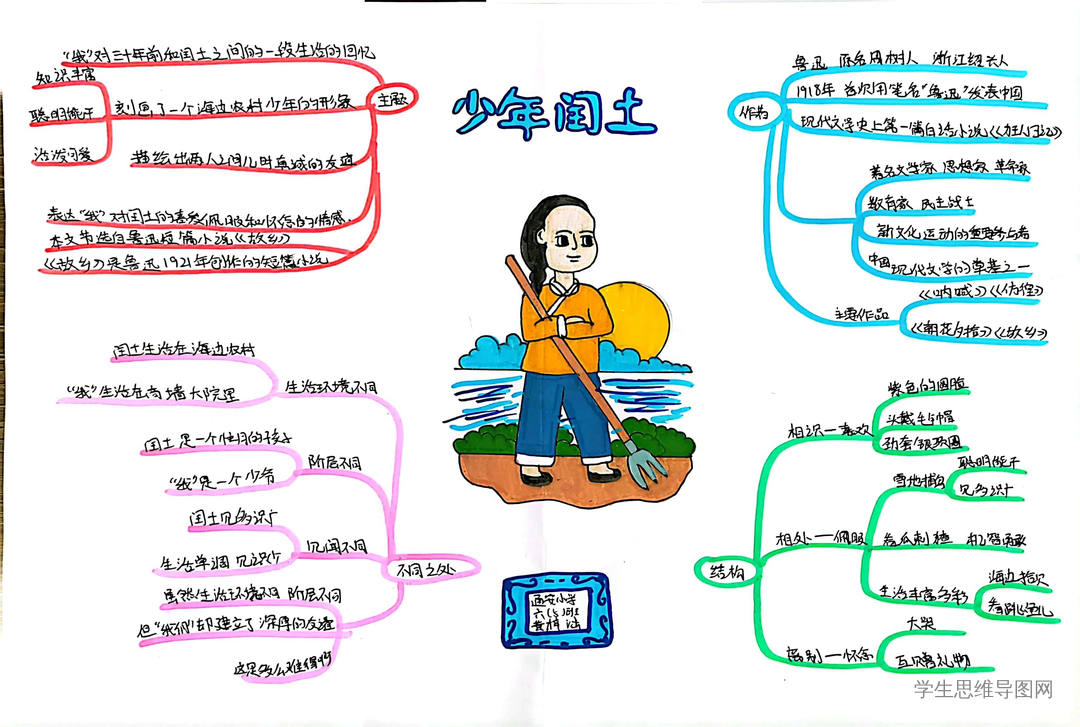 少年闰土
主题
"我"对三十年前和闰土之间的一段生活的回忆
刻画了一个海边农村少年的形象
知识丰富
聪明能干
活泼可爱
描绘出两人之间儿时真诚的友谊
表达"我"对闰土的喜爱佩服和怀念的情感.
本文节选自鲁迅短篇小说《故乡》
《故乡》是鲁迅1921年创作的短篇小说
作者
鲁迅 原名周树人 浙江绍兴人
1918年 首次用笔名"鲁迅"发表中国
现代文学史上第一篇白话小说《狂人日记》
著名文学家 思想家 革命家
教育家 民主战士
新文化运动的重要参与者
中国现代文学的奠基之一
主要作品
《呐喊》《彷徨》
《朝花夕拾》《故乡》
不同之处
生活环境不同
闰土生活在海边农村
"我"生活在高墙大院里
阶层不同
闰土是一个忙月的孩子
"我"是一个少爷
见闻不同
闰土见多识广
生活单调 见识少
虽然生活环境不同 阶层不同
但"我们"却建立了深厚的友谊
这是多么难得啊
结构
相识一喜欢
紫色的圆脸
头戴毛毡帽
颈套银项圈
相处一佩服
雪地捕鸟
聪明能干
见多识广
看瓜刺猹 机智勇敢
生活丰富多彩
海边拾贝
看跳鱼儿
离别一怀念
大哭
互赠礼物
西安小学
学生思维导图网